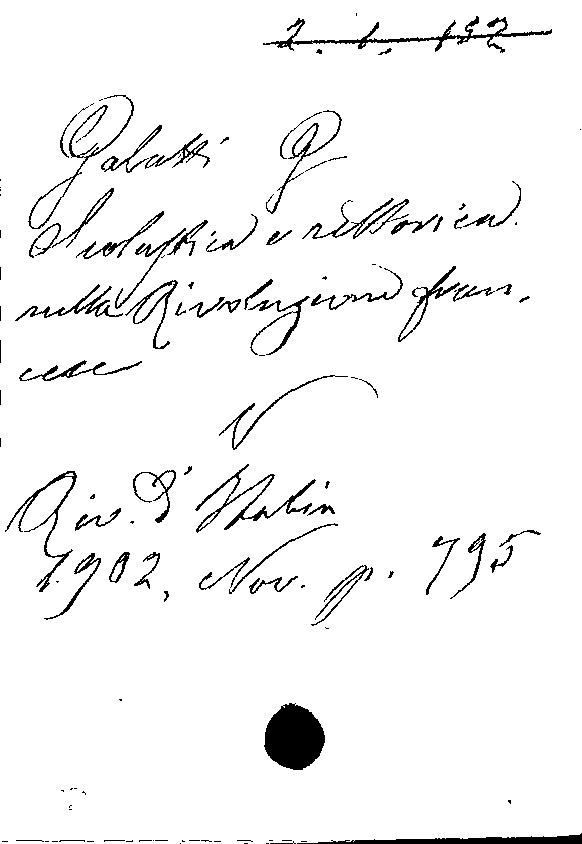 2. 6. 152
Galatti G
Scolastica e rettorica
nella Rivoluzione fran-
cese
V
Riv. d'Italia
1902, Nov. p. 795